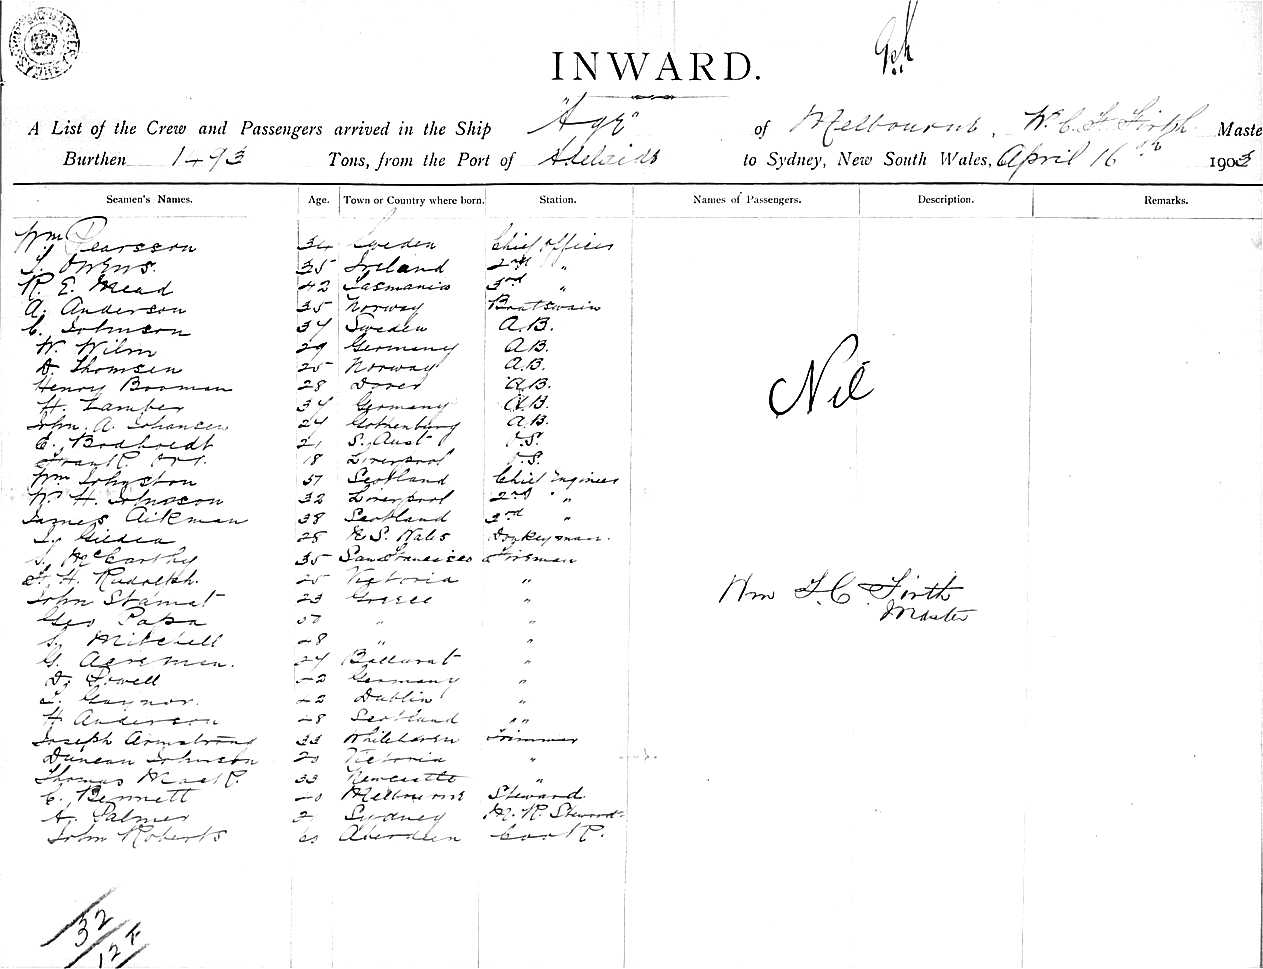 Gek
INWARD.
A List of the Crew and Passengers arrived in the Ship "Age" of Melbourne, W. C. F. Firth Maste
Burthen 1493 Tons, from the Port of Adelaide to Sydney, New South Wales, April 16th 1903
Seamen's Names. Age. Town or Country where born. Station. Names of Passengers. Description. Remarks.
Wm Pearsson 34 Sweden Chief Officer
T. Owens. 35 Ireland 2nd "
R. E. Mead 42 Tasmania 3rd "
A. Anderson 35 Norway Boatswain
C. Johnson 37 Sweden A.B.
W. Wilm 29 Germany A.B.
D. Thomsen 25 Norway A.B.
Henry Booman 28 Dover A.B.
H. Lamber 37 Germany A.B.
John A. Johansen 24 Gothenburg A.B.
E. 21 S. Aust O.S.
Frank 18 Liverpool O.S.
Wm Johnston 57 Scotland Chief Engineer
W. H. Johnson 32 Liverpool 2nd "
James Aikman 38 Scotland 3rd "
Gildea 28 N. S. Wales Donkeyman.
J. McCarthy 35 San Francisco Fireman
F. H. Rudolph. 25 Victoria "
John Stamat 23 Greece "
Geo Papa 50 " "
S. Mitchell 28 " "
G. Agreman. 27 Ballarat "
D. Powell 22 Germany "
T. Gaynor. 22 Dublin "
H Anderson 28 Scotland "
Joseph Armstrong 33 Whitehaven Trimmer
Duncan Johnson 20 Victoria "
Thomas Mack 33 Newcastle "
C. Bennett 20 Melbourne Steward
A. Palmer 2 Sydney M. R. Steward
John Roberts 60 Aberdeen Cook
Nil
Wm F. C. Firth
Master
32
124